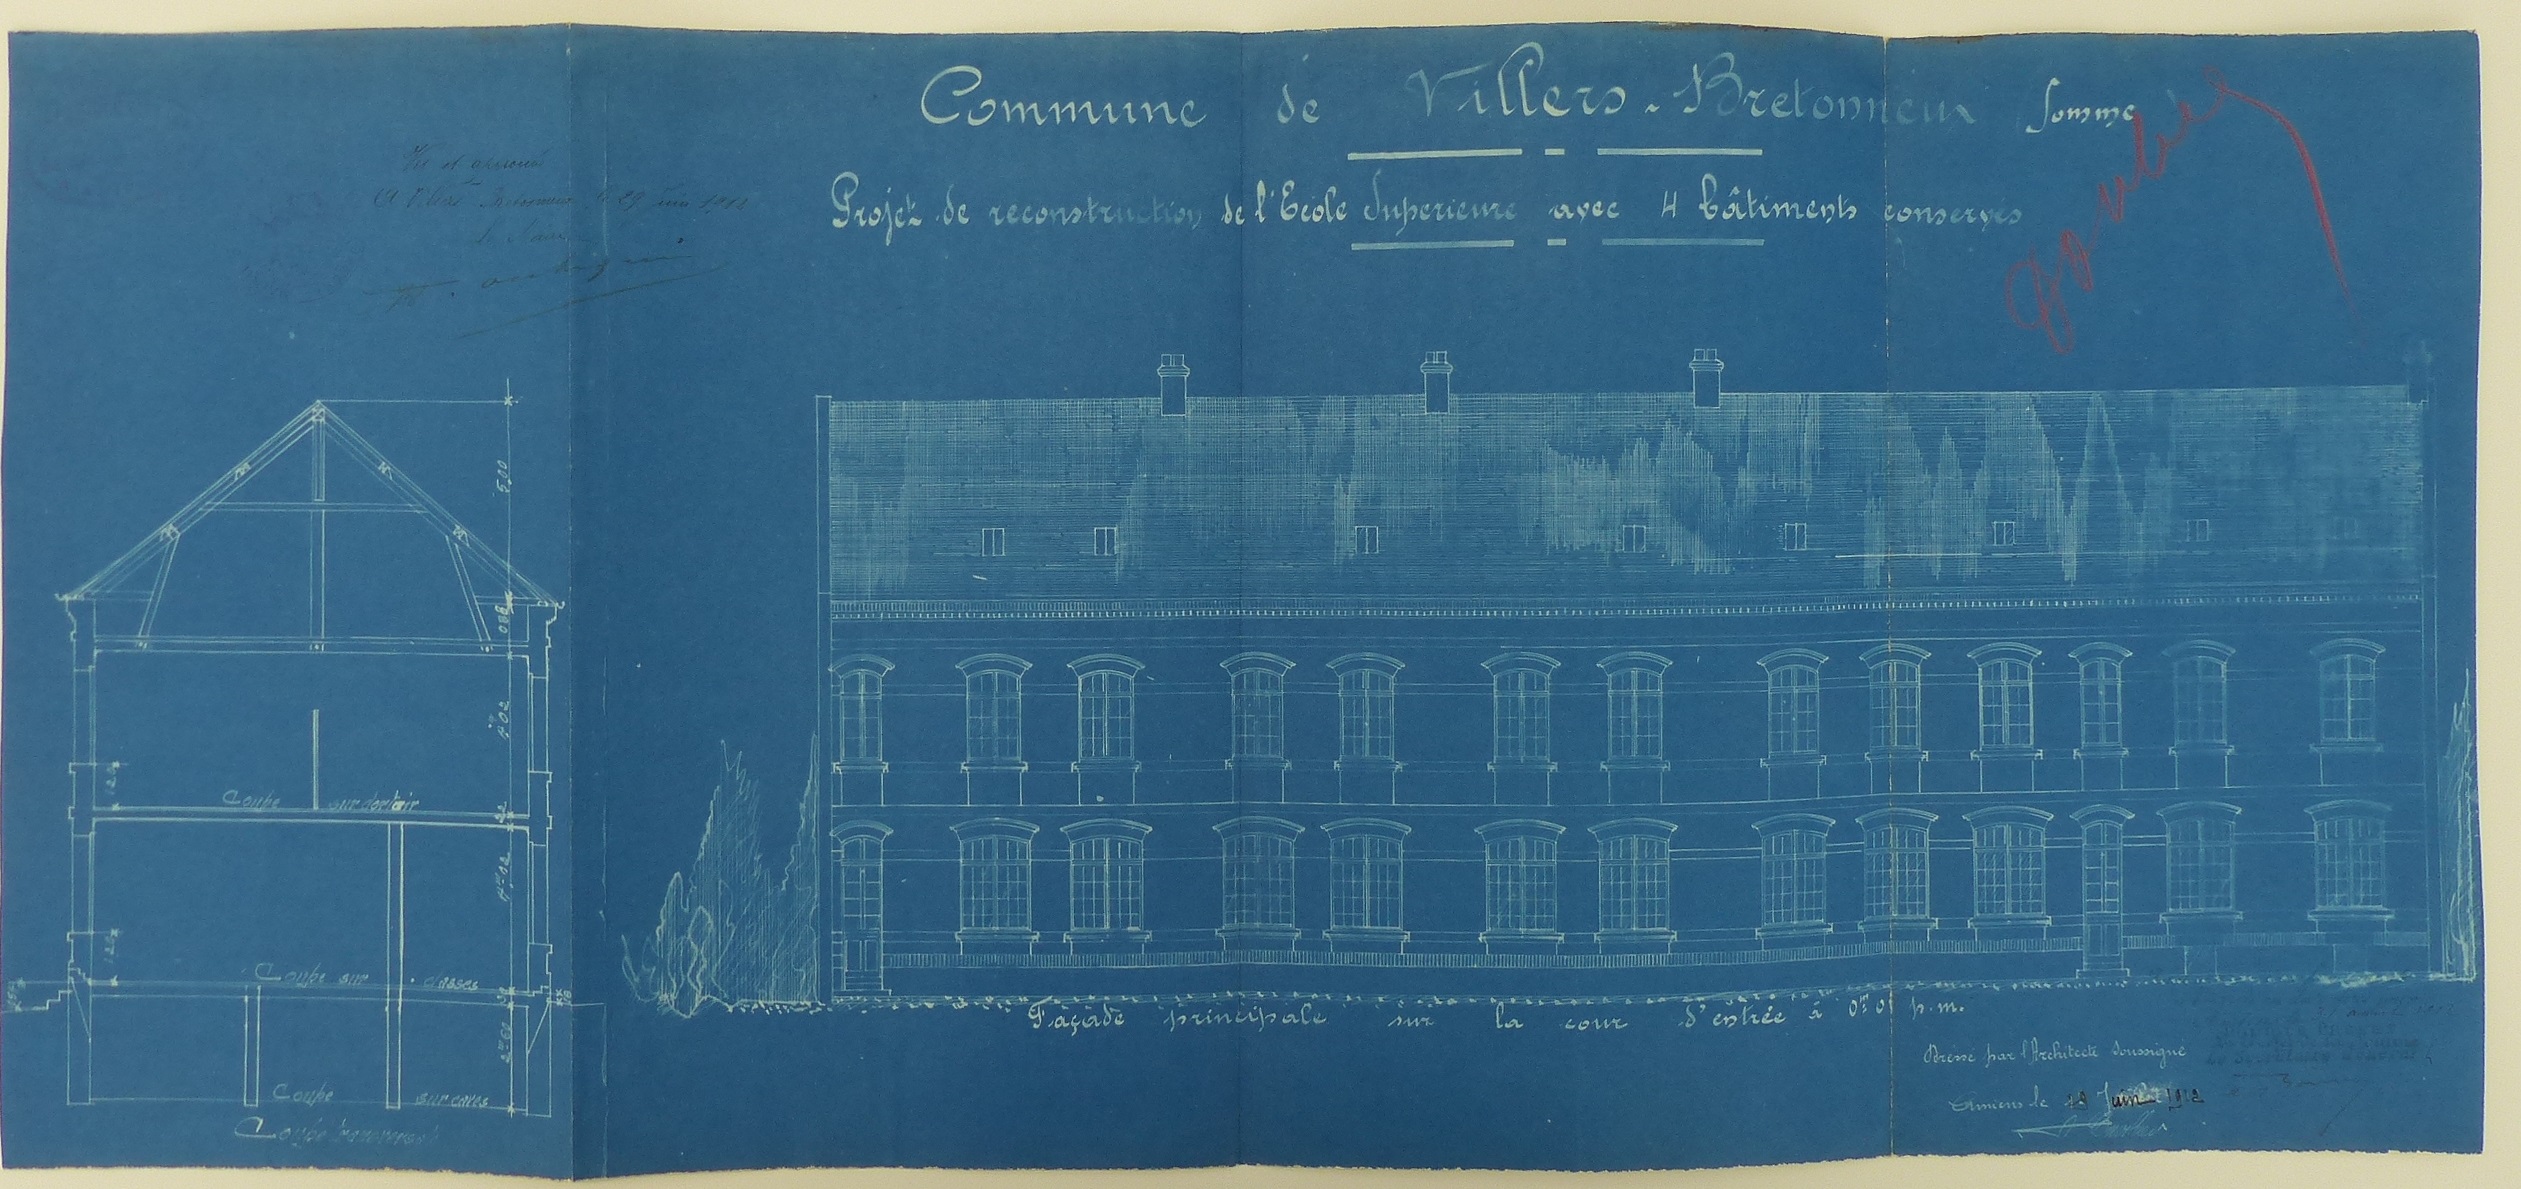 Commune de Villers-Bretonneux Somme
Projet de reconstruction de l'Ecole Superieure avec 4 bâtiments conservés
Vu et approuvé
A Villers Bretonneux le 29 juin 1912
le Maire
5,00
0,80
4m,02
1,20
Coupe sur dortoir
4m,02
1,20
Coupe sur classes
2m,60
Coupe sur caves
Coupe transversale
Façade principale sur la cour d'entrée à 0m,01 p.m.
Dressé par l'Architecte soussigné
Amiens le Juin 1912